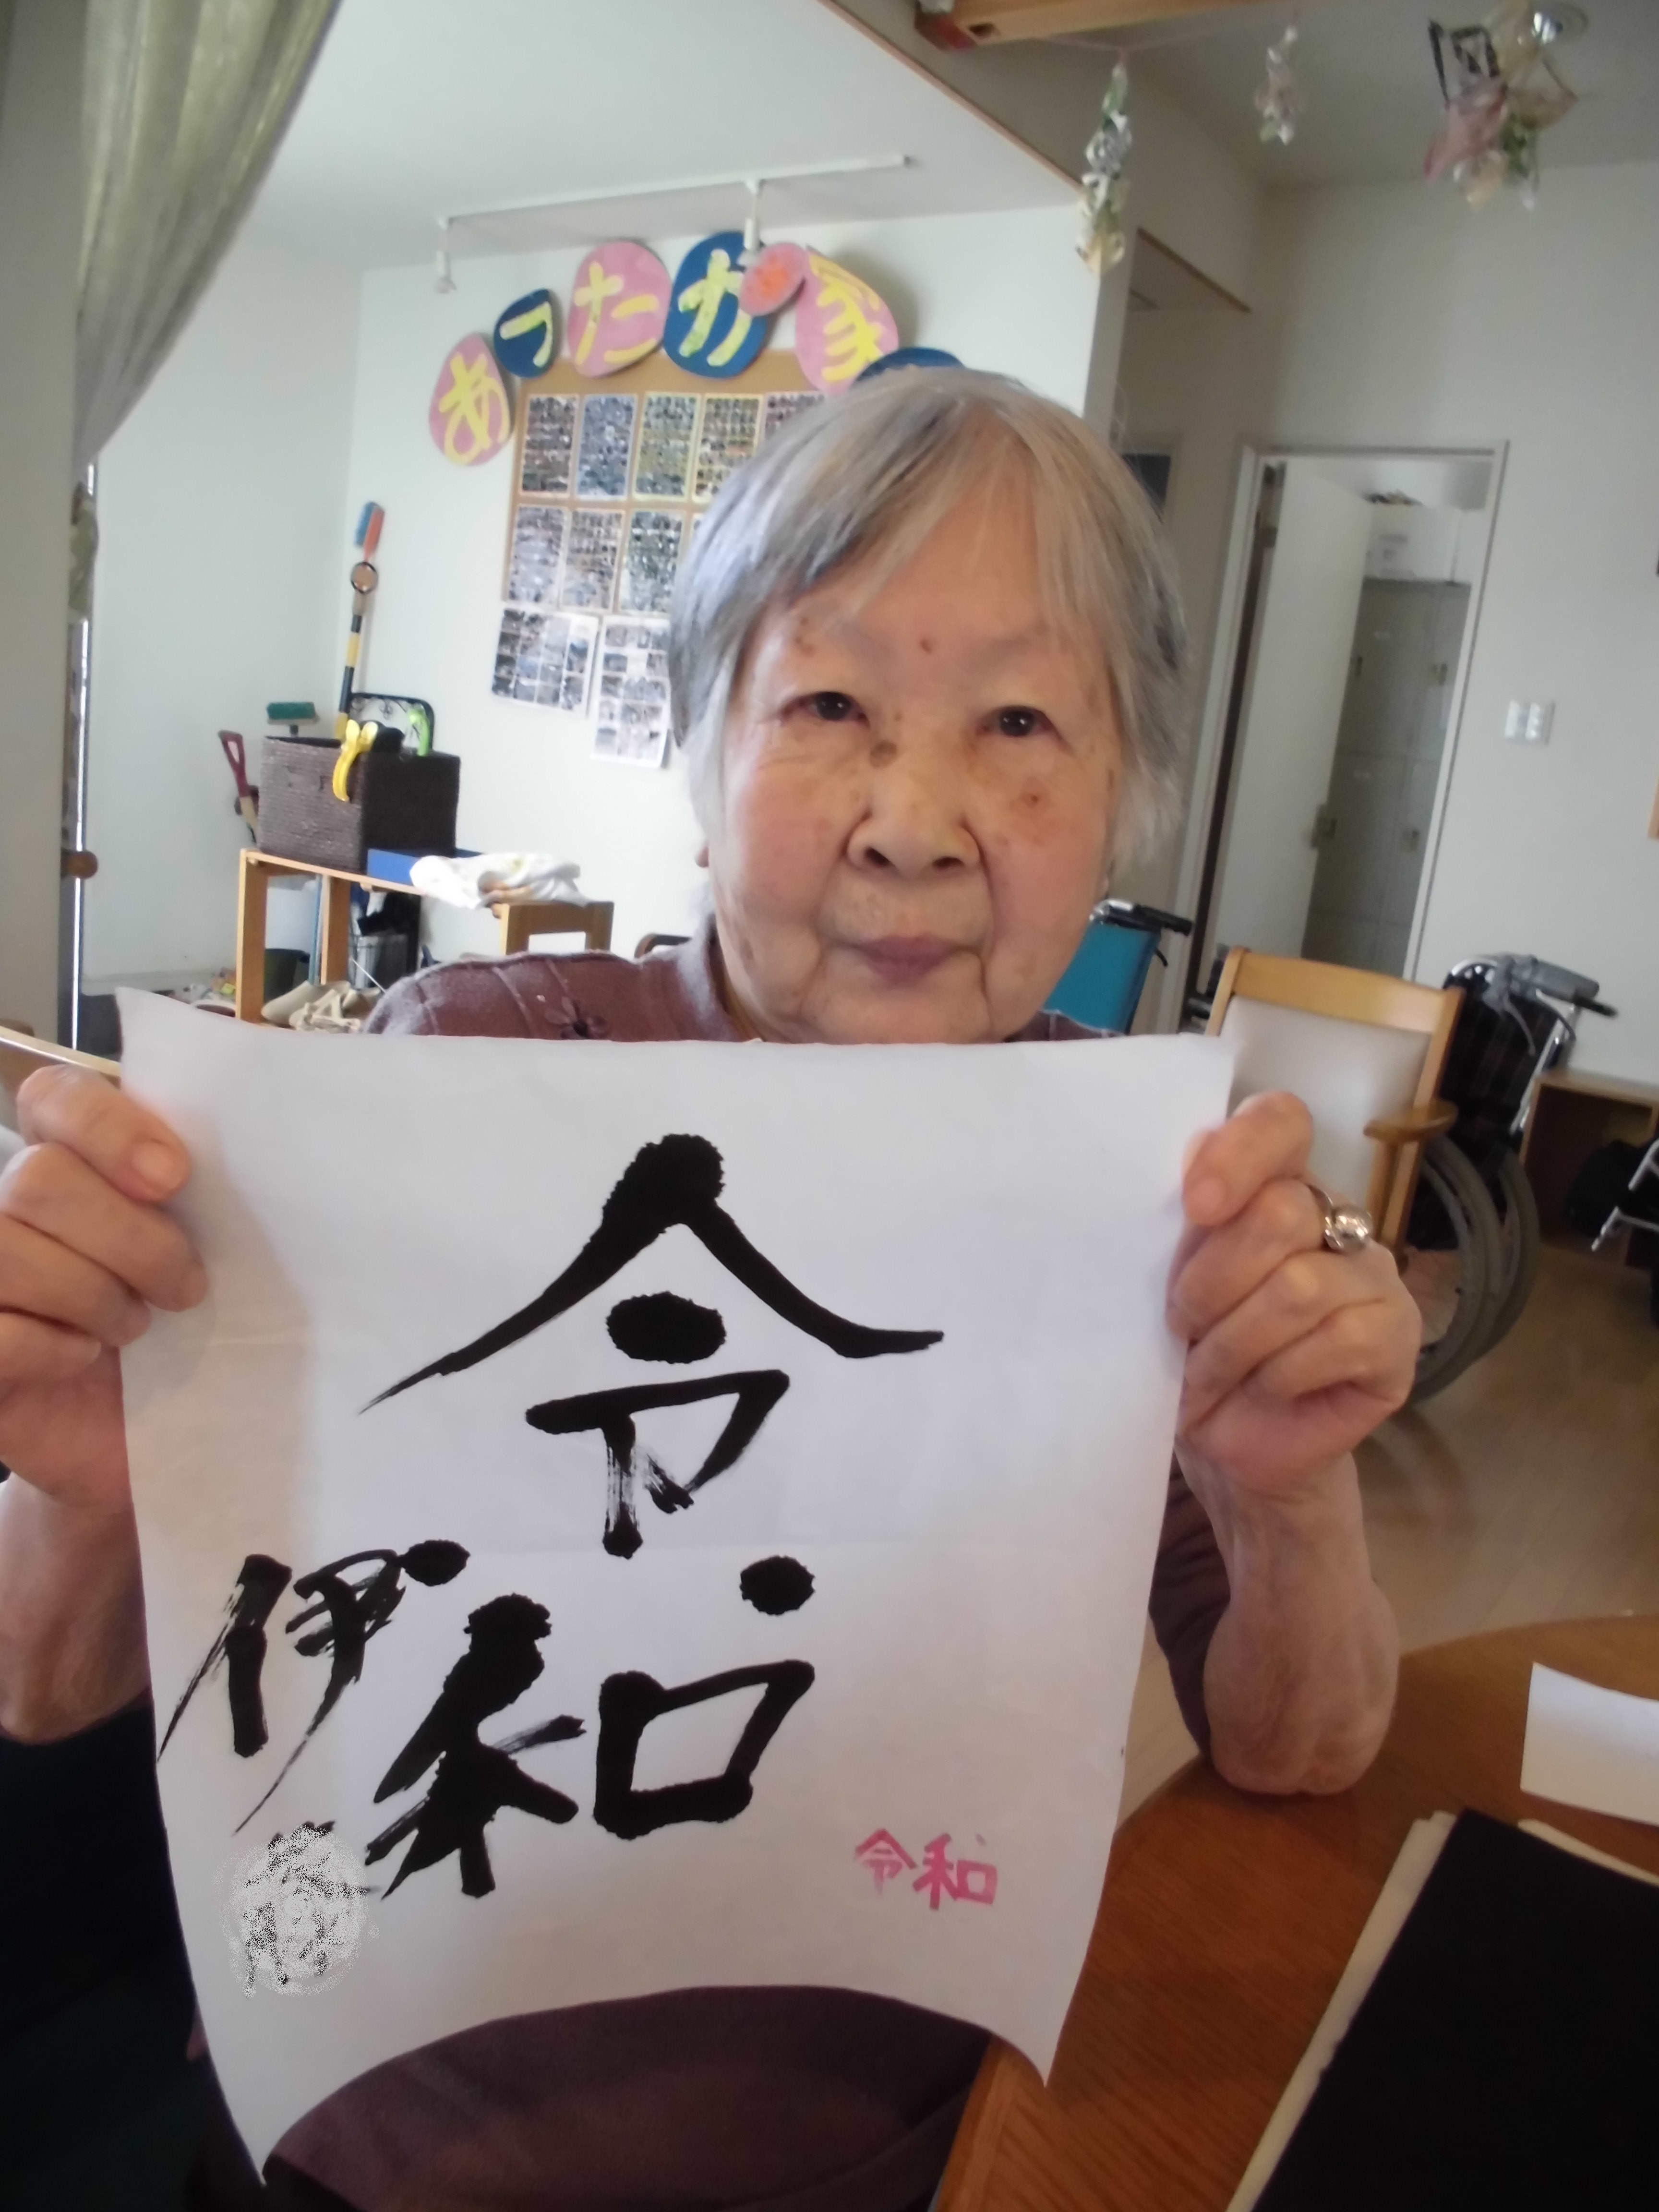 あったか家
令
和
伊
令和